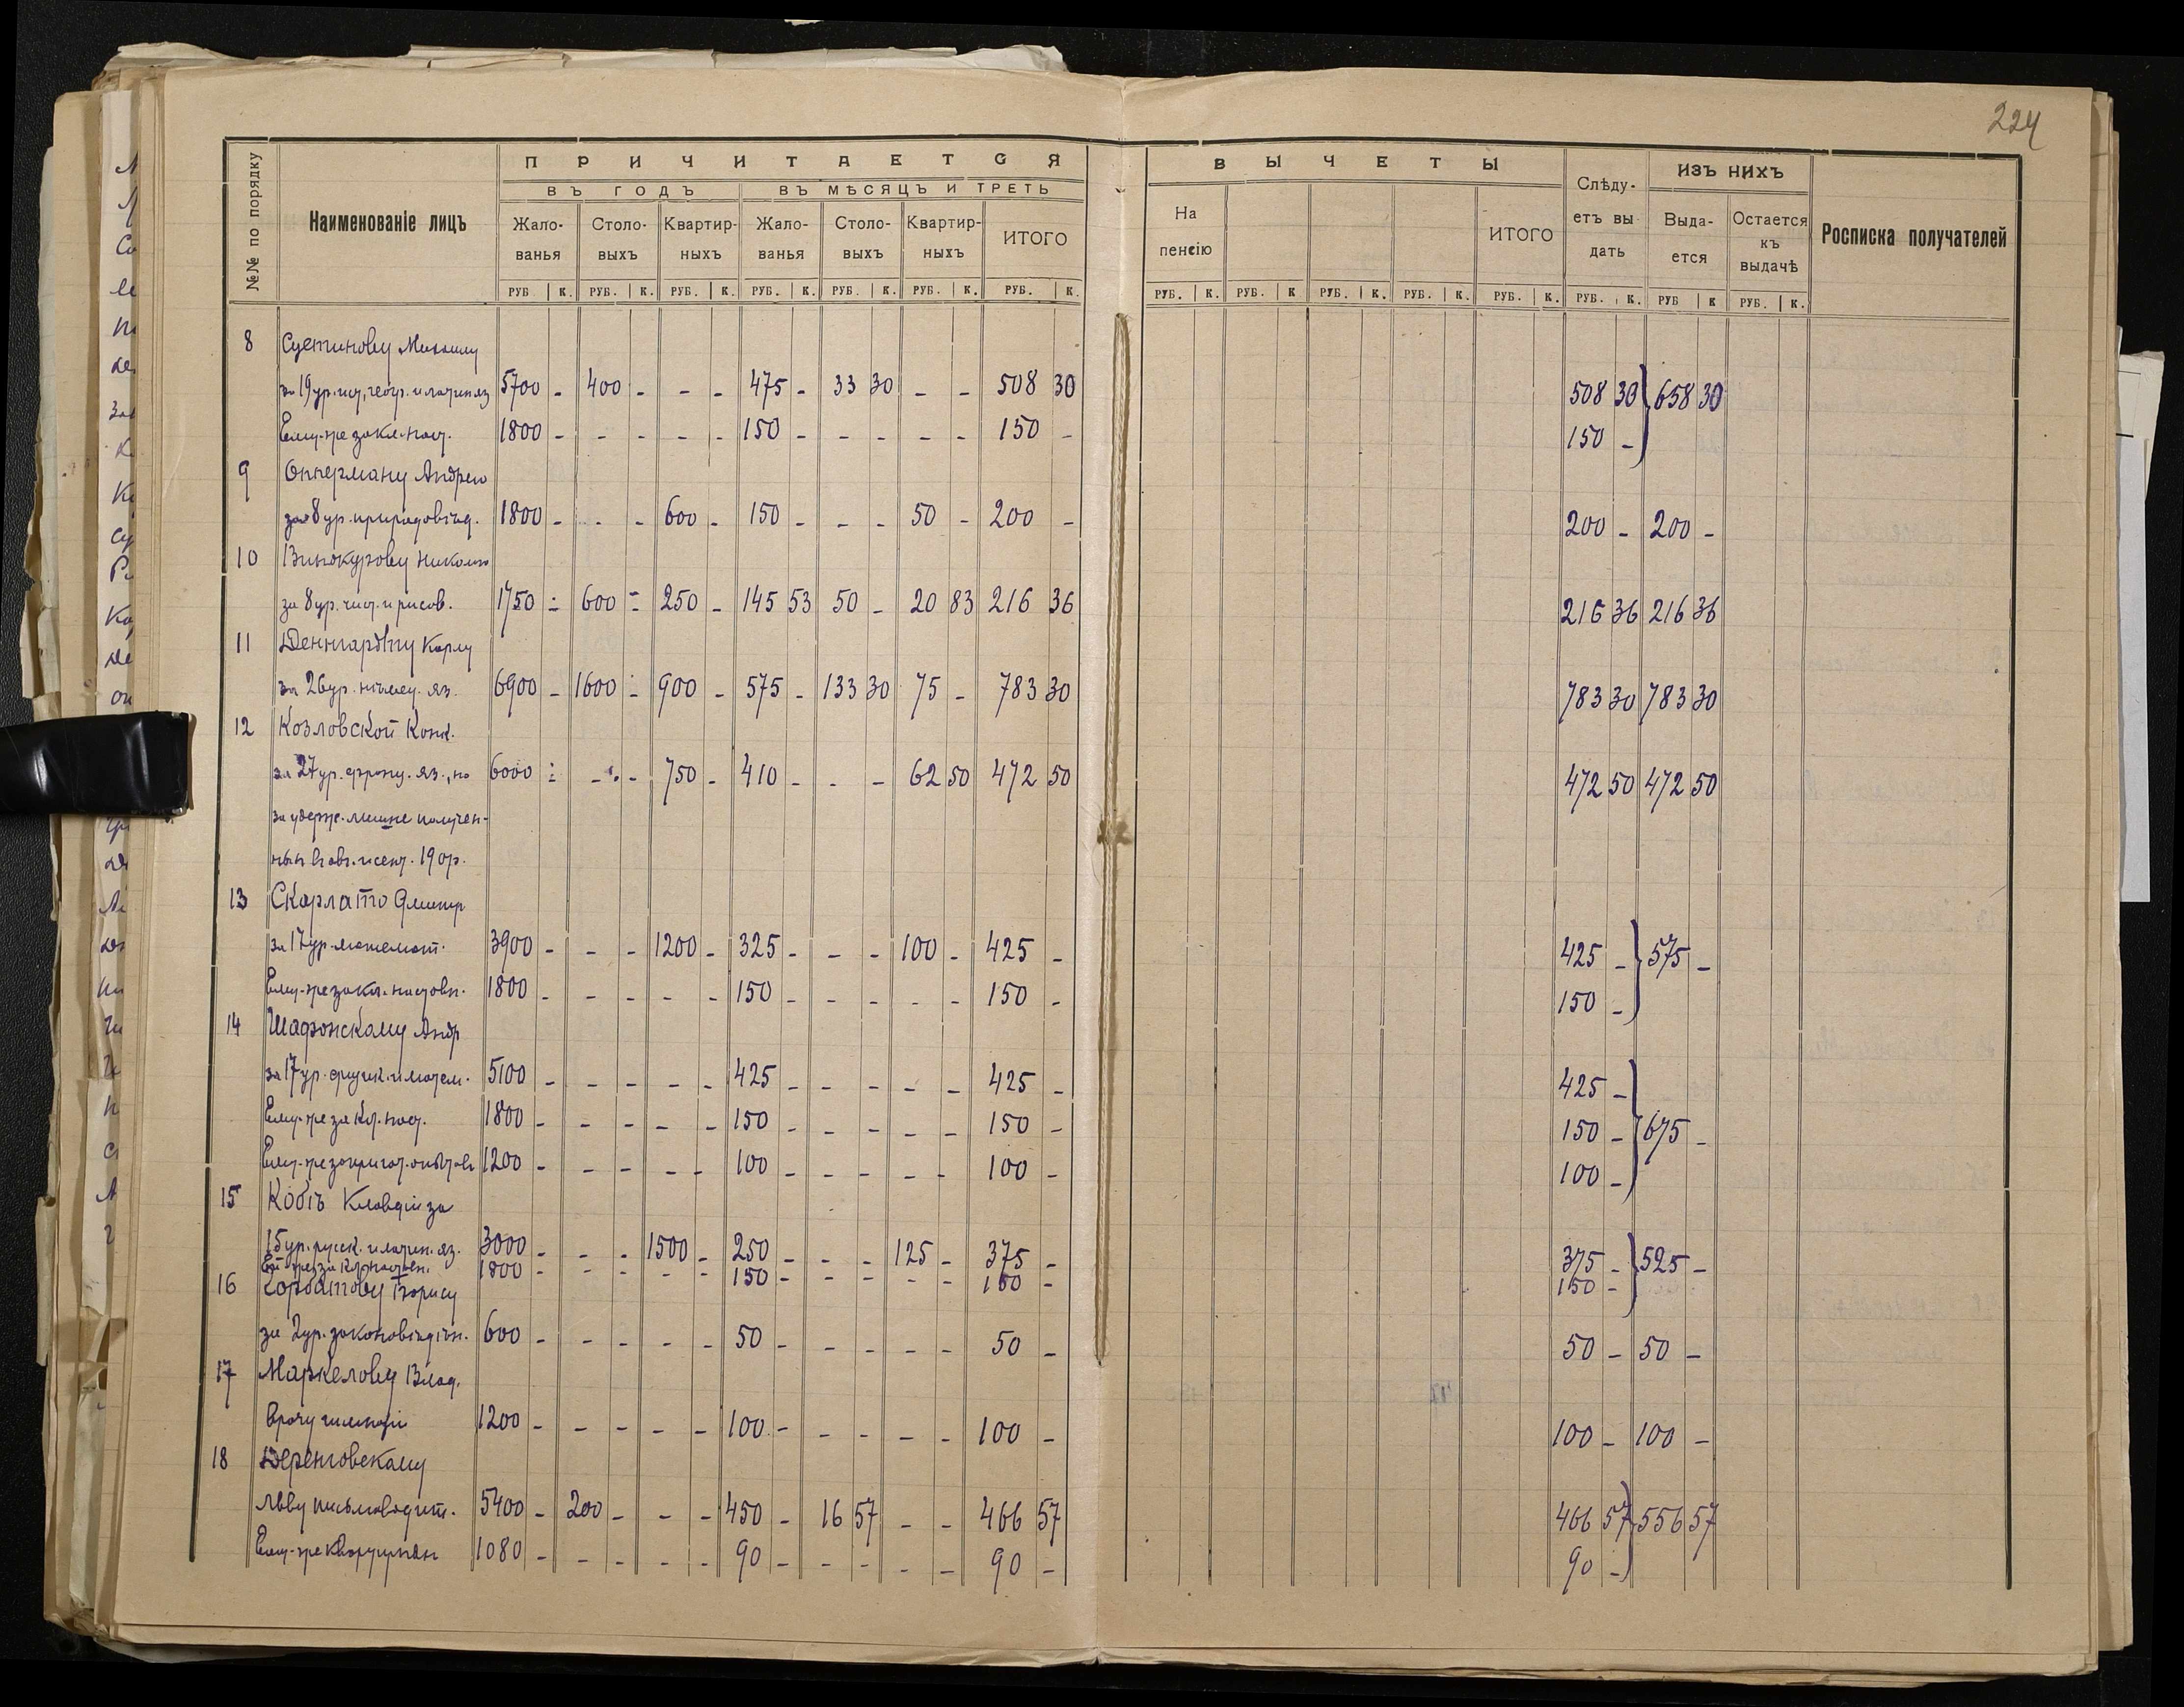 224
№№ по порядку
Наименованіе лицъ
ПРИЧИТАЕТСЯ
ВЪ ГОДЪ
ВЪ МѢСЯЦЪ И ТРЕТЬ
Жало-ванья Столо-выхъ Квартир-ныхъ Жало-ванья Столо-выхъ Квартир-ныхъ ИТОГО
РУБ. К. РУБ. К. РУБ. К. РУБ. К. РУБ. К. РУБ. К. РУБ. К.
ВЫЧЕТЫ
На пенсію
ИТОГО
Слѣду-етъ вы дать
ИЗЪ НИХЪ
Выда-ется
Остается къ выдачѣ
Росписка получателей
РУБ. К. РУБ. К РУБ. К. РУБ. К. РУБ. К. РУБ. К. РУБ К РУБ. К.
8 Суетинову Михаилу
за 19 ур. ист., геогр. и латин яз 5700 - 400 - - - 475 - 33 30 - - 508 30 508 30 658 30
Ему-же за кл. наст. 1800 - - - - - 150 - - - - - 150 - 150 -
9 Опперману Андрею
за 8 ур. природовѣд. 1800 - - - 600 - 150 - - - 50 - 200 - 200 - 200 -
10 Винокурову Николаю
за 8 ур. чист. и рисов. 1750 - 600 - 250 - 145 53 50 - 20 83 216 36 216 36 216 36
11 Деннгардту Карлу
за 26 ур. нѣмец. яз. 6900 - 1600 - 900 - 575 - 133 30 75 - 783 30 783 30 783 30
12 Козловской Конк.
за 27 ур. франц. яз., но 6000 - - - 750 - 410 - - - 62 50 472 50 472 50 472 50
за удерж. лишне получен-
ных в авг. и сент. 190р.
13 Скарлато Дмитр
за 17 ур. математ. 3900 - - - 1200 - 325 - - - 100 - 425 - 425 - 575 -
Ему-же за кл. наставн. 1800 - - - - - 150 - - - - - 150 - 150 -
14 Шафонскому Андр
за 17 ур. физик. и матем. 5100 - - - - - 425 - - - - - 425 - 425 - 675 -
Ему-же за кл. наст. 1800 - - - - - 150 - - - - - 150 - 150 -
Ему-же за пригот. опытов 1200 - - - - - 100 - - - - - 100 - 100 -
15 Кобъ Клавдіи за
15 ур. русск. и латин. яз. 3000 - - - 1500 - 250 - - - 125 - 375 - 375 - 525 -
Ей-же за кл. наставн. 1800 - - - - - 150 - - - - - 150 - 150 -
16 Горбатову Борису
за 2 ур. законовѣдѣн. 600 - - - - - 50 - - - - - 50 - 50 - 50 -
17 Маркелову Влад.
врачу гимназіи 1200 - - - - - 100 - - - - - 100 - 100 - 100 -
18 Деренговскому
Льву письмоводит. 5400 - 200 - - - 450 - 16 57 - - 466 57 466 57 556 57
Ему-же квартирныхъ 1080 - - - - - 90 - - - - - 90 - 90 -